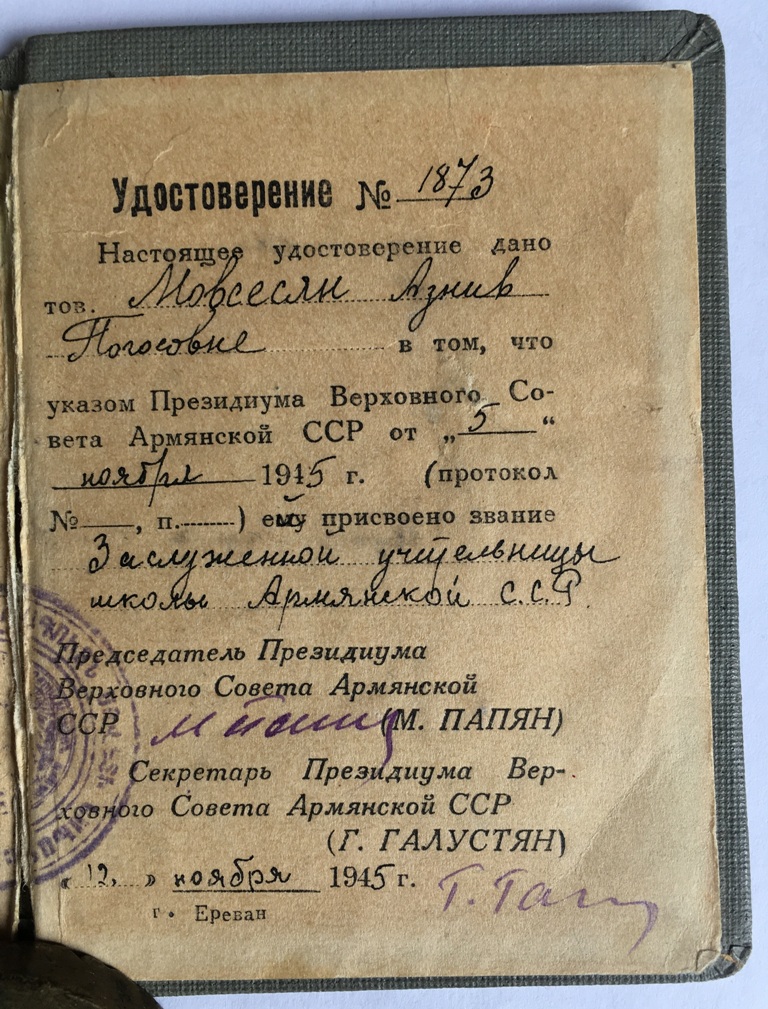 Удостоверение № 1873
Настоящее удостоверение дано
тов. Мовсесян Азнив
Погосовне в том, что
указом Президиума Верховного Со-
вета Армянской ССР от „5“
ноября 1945 г. (протокол
№ , п. ) ей присвоено звание
Заслуженной учительницы
школы Армянской С.С.Р.
Председатель Президиума
Верховного Совета Армянской
ССР (М. ПАПЯН)
Секретарь Президиума Вер-
ховного Совета Армянской ССР
(Г. ГАЛУСТЯН)
« 12 » ноября 1945 г.
г. Ереван